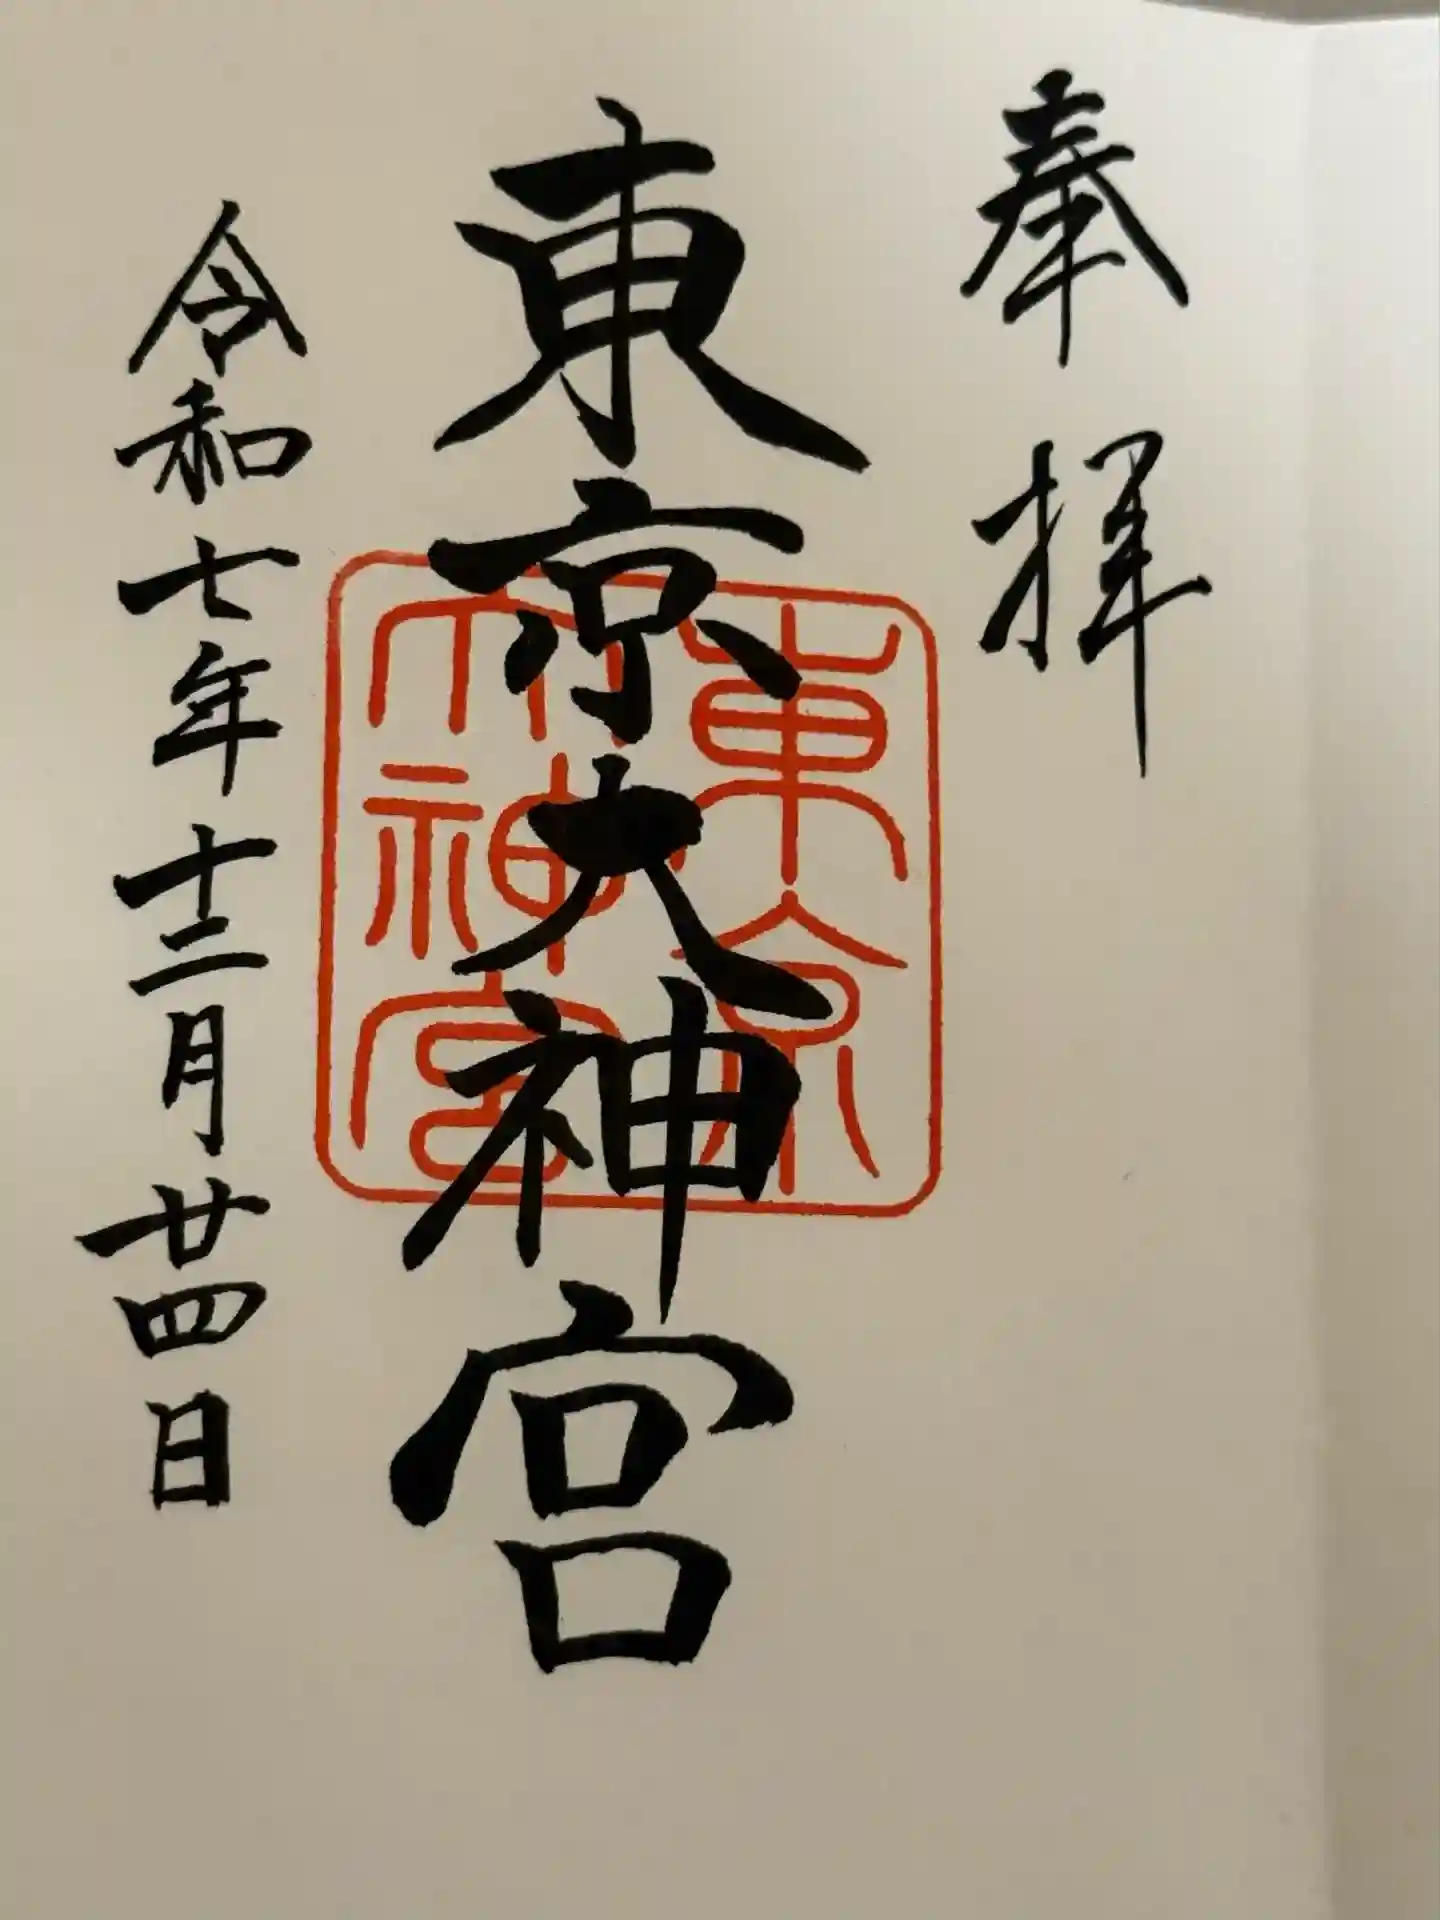 奉拝
東京大神宮
東京
大神宮
令和七年十二月廿四日